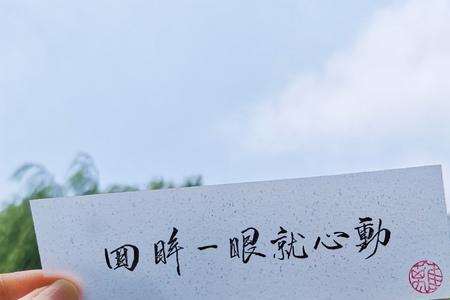 回眸一眼就心動